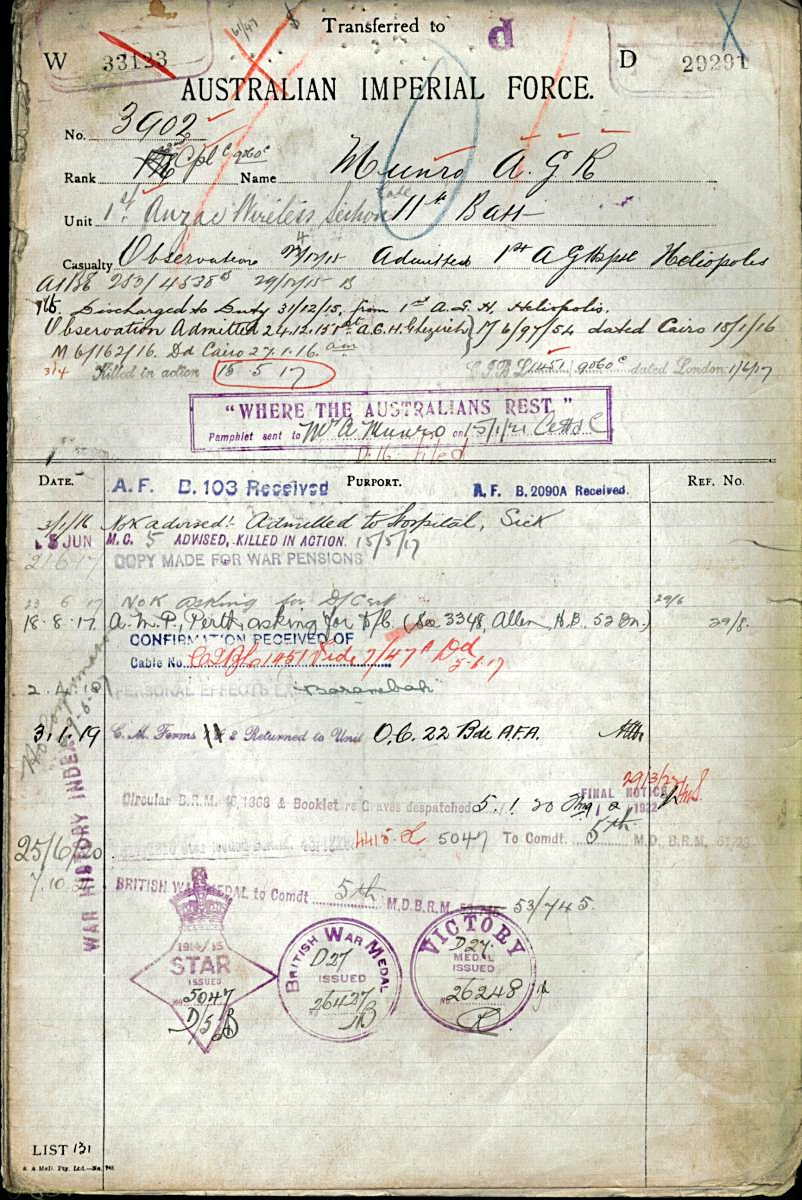 Transferred to
61/47
d
W 33123
D 29291
AUSTRALIAN IMPERIAL FORCE.
No. 3902
Rank Cpl c 9060c Name Munro A. G. R
Unit 1st Anzac Wireless Section late 11th Batt
Casualty Observation 24/12/15 Admitted 1st A G Hspl Heliopolis
A1186 253/4538 29/12/15 B
Discharged to Duty 31/12/15, from 1st A. G. H. Heliopolis.
Observation Admitted 24.12.15 1st A.G.H. Ghezireh } M 6/97/54 dated Cairo 15/1/16
M 6/162/16. Dd Cairo 27.1.16.
314 Killed in action 15 5 17 C.I.B L 1451/9060c dated London 1/6/17
"WHERE THE AUSTRALIANS REST"
Pamphlet sent to Mr A Munro on 15/1/21
DATE. PURPORT. REF. No.
A.F. B.103 Received A.F. B.2090A Received.
3/1/16 Nok advised:- Admitted to Hospital, Sick
5 JUN M.C. 5 ADVISED, KILLED IN ACTION. 15/5/17
21 6 17 COPY MADE FOR WAR PENSIONS
23 6 17 Nok asking for D/Cert 29/6
18.8.17 A.M.P., Perth, asking for D/C. (See 3348, Allen, H.B. 52 Bn.) 29/8.
CONFIRMATION RECEIVED OF
Cable No. 1451 Vide 7/47 A Dd
5.6.17
2.4.18 PERSONAL EFFECTS EX "Barambah"
3.1.19 C. M. Forms 1 & 2 Returned to Unit O.C. 22 Bde A.F.A.
WAR HISTORY INDEX
29/3/22
FINAL NOTICE
1922
Circular B.R.M. 46/1368 & Booklet re Graves despatched 5.1.20
25/6/20 4415 L 5047 To Comdt. 5th M.D. B.R.M.
7.10. BRITISH WAR MEDAL to Comdt 5th M.D.B.R.M. 53/745.
1914/15
STAR
ISSUED
No. 5047
D/5
BRITISH WAR MEDAL
D27
ISSUED
No. 26427
VICTORY
D27
MEDAL
ISSUED
No. 26248
LIST 131